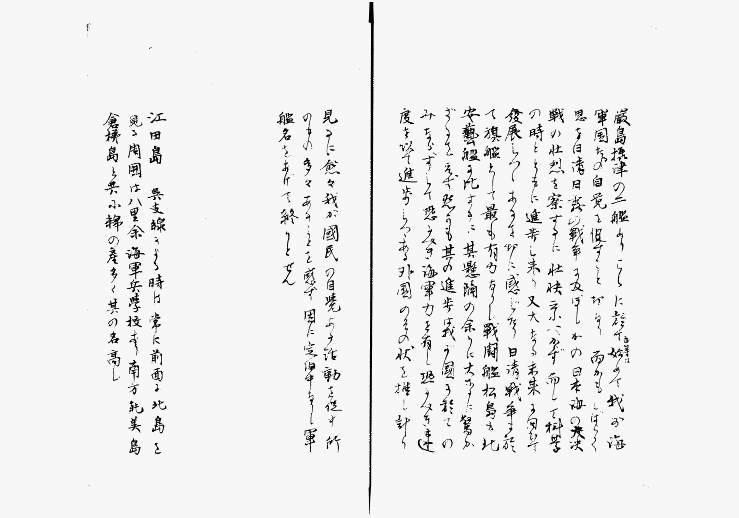 厳島摂津の二艦あり こゝに於て始めて我が海
軍国たるの自覚を促すこと切なり 而かもしばらく
思を日清日露の戦争に及ぼし かの日本海の大決
戦の壮烈を察するに 壮快 云ふべからず 而して科学
の時とともに進歩し来り 又大なる未来に向って
発展しつゝあるを切に感じたり 日清戦争に於
て旗艦として最も有力なりし戦闘艦松島を此
安藝艦に比するに 其懸隔の余りに大なるに驚か
ざるを得ず 然かも其の進歩は我が國に於ての
みならずして恐るべき海軍力を有し 恐るべき速
度を以て進歩しつゝある外國のその状を推し計り
見るに 愈々我が國民の自覚ある活動を促す所
のもの多々あることを感ず 因に定泊中なりし軍
艦名をあげて終りとせん
江田島 呉支線よる時は 常に前面に北島を
見る 周囲は八里余 海軍兵学校あり 南方能美島
倉橋島と共に綿の産多く其の名高し